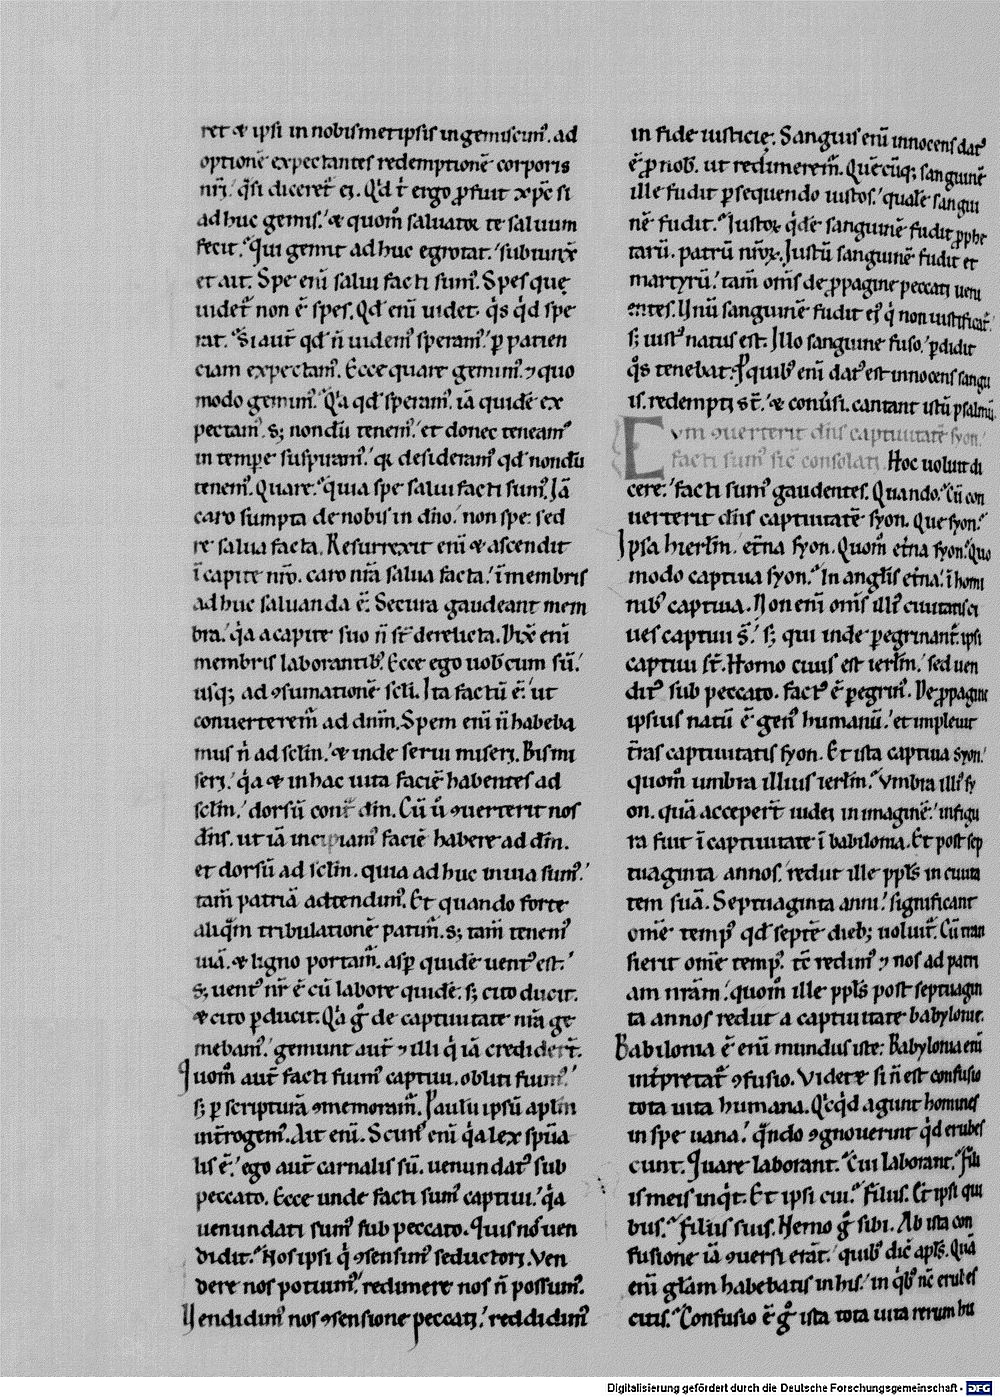 ret & ipsi in nobismetipsis ingemiscim᷒. ad
optionē expectantes redemptionē corporis
nr̄i. q̊si diceret̄ ei. Qd̄ t̄ ergo ꝓfuit xp̄c si
adhuc gemis? & quom̄ saluator te saluum
fecit? Qui gemit adhuc egrotat. subiunx̄
et ait. Spe eni salui facti sum᷒. Spes quę
uidet᷑ non ē spes. Qd̄ eni uidet. q̊s q̊d spe
rat? Si aut̄ qd̄ n̄ uidem᷒ speram᷒. ꝑ patien
ciam expectam᷒. Ecce quare gemim᷒. ⁊ quo
modo gemim᷒. Q̊a qd̄ speram᷒. iā quidē ex
pectam᷒. s; nondū tenem᷒. et donec teneam᷒
in tempe suspiram᷒. q̊ desideram᷒ qd̄ nondū
tenem᷒. Quare? quia spe salui facti sum᷒. Iā
caro sumpta de nobis in dn̄o. non spe. sed
re salua facta. Resurrexit eni & ascendit
ī capite nr̄o. caro nr̄a salua facta. ī membris
adhuc saluanda ē. Secura gaudeant mem
bra. q̊a a capite suo n̄ st̄ derelicta. Dix̄ eni
membris laborantib᷒. Ecce ego uobcum sū.
usq; ad ꝯsumationē scl̄i. Ita factū ē. ut
conuerterem᷑ ad dnm̄. Spem eni n̄ habeba
mus n̄ ad sclm̄. & inde serui miseri. Bis mi
seri. q̊a & in hac uita faciē habentes ad
sclm̄. dorsū cont̄ dm̄. Cū ū ꝯuerterit nos
dn̄s. ut iā incipiam᷒ faciē habere ad dm̄.
et dorsū ad sclm̄. quia adhuc in uia sum᷒.
tam̄ patriā adtendim᷒. Et quando forte
aliq̊m tribulationē patim᷑. s; tam̄ tenem᷒
uiā. & ligno portam᷑. asꝑ quidē uent᷒ est.
s; uent᷒ nr̄ ē cū labore quidē. s; cito ducit.
& cito ꝑducit. Q̊a ḡ de captiuitate nr̄a ge
mebam᷒. gemunt aut̄ ⁊ illi q̊ iā crediderт̄.
Quom̄ aut̄ facti fuim᷒ captiui. obliti fuim᷒.
s; ꝑ scripturā ꝯmemoram᷑. Paulū ipsū aplm̄
int̄rogem᷒. Ait eni. Scim᷒ eni q̊a lex spūa
lis ē. ego aut̄ carnalis sū. uenundat᷒ sub
peccato. Ecce unde facti sum᷒ captiui. q̊a
uenundati sum᷒ sub peccato. Quis nos uen
didit? Nos ipsi q̊ ꝯsensim᷒ seductori. Ven
dere nos potuim᷒. redimere nos n̄ possum᷒.
Vendidim᷒ nos ꝯsensione peccati. reddidim᷒
in fide iusticię. Sanguis eni innocens dat᷒
ē ꝓ nob. ut redimerem᷑. Quēcūq; sanguinē
ille fudit ꝑsequendo iustos. qualē sangui
nē fudit? Iustoꝝ q̊dē sanguinē fudit ꝓphe
tarū. patrū nr̄oꝝ. Iustū sanguinē fudit et
martyrū. tam̄ oms̄ de ꝓpagine peccati ueni
entes. Vnū sanguinē fudit ei᷒ q̊ non iustificat᷒.
s; iust᷒ natus est. Illo sanguine fuso. ꝑdidit
q̊s tenebat. P quib᷒ eni dat᷒ est innocens sangu
is. redempti st̄. & conūsi. cantant istū psalmū.
Cvm ꝯuerterit dn̄s captiuitatē syon.
facti sum᷒ sic̄ consolati. Hoc uoluit di
cere. facti sum᷒ gaudentes. Quando? Cū con
uerterit dn̄s captiuitatē syon. Que syon?
Ipsa hierlm̄. et̄na syon. Quom̄ et̄na syon? Quo
modo captiua syon? In anglis et̄na. ī homi
nib᷒ captiua. Non eni oms̄ illi᷒ ciuitatis ci
ues captiui s̄. s; qui inde ꝑegrinant᷑. ipsi
captiui st̄. Homo ciuis est ierlm̄. sed uen
dit᷒ sub peccato. fact᷒ ē ꝑegrin᷒. De ꝓpagine
ipsius natū ē gen᷒ humanū. et impleuit
t̄ras captiuitatis syon. Et ista captiua syon.
quom̄ umbra illius ierlm̄? Vmbra illi᷒ sy
on. quā accepert̄ iudei in imaginē. in figu
ra fuit ī captiuitate ī babilonia. Et post sep
tuaginta annos. rediit ille ppl̄s in ciuita
tem suā. Septuaginta anni. significant
omē temp᷒ qd̄ septē dieb; uoluit᷑. Cū tran
sierit omē temp᷒. tc̄ redim᷒ ⁊ nos ad patri
am nr̄am. quom̄ ille ppl̄s post septuagin
ta annos rediit a captiuitate babylonię.
Babilonia ē eni mundus iste. Babylonia eni
int̄pretat᷑ ꝯfusio. Videte si n̄ est confusio
tota uita humana. Qicq̊d agunt homines
in spe uana. q̊ndo ꝯgnouerint q̊d erubes
cunt. Quare laborant? Cui laborant? Fili
is meis inq̊t. Et ipsi cui? Filiis. Et ipsi qui
bus? Filiis suis. Nemo ḡ sibi. Ab ista con
fusione iā ꝯuersi erāt. quib᷒ dic̄ apl̄s. Quā
eni glam̄ habebatis in his. in q̊b᷒ nc̄ erubes
citis? Confusio ē ḡ ista tota uita rerum hu
Digitalisierung gefördert durch die Deutsche Forschungsgemeinschaft - DFG